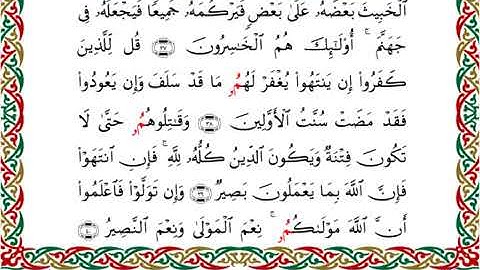 ٱلْخَبِيثَ بَعْضَهُۥ عَلَىٰ بَعْضٍ فَيَرْكُمَهُۥ جَمِيعًا فَيَجْعَلَهُۥ فِى
جَهَنَّمَ ۚ أُو۟لَٰٓئِكَ هُمُ ٱلْخَٰسِرُونَ ۝٣٧ قُل لِّلَّذِينَ
كَفَرُوٓا۟ إِن يَنتَهُوا۟ يُغْفَرْ لَهُمُۥ مَا قَدْ سَلَفَ وَإِن يَعُودُوا۟
فَقَدْ مَضَتْ سُنَّتُ ٱلْأَوَّلِينَ ۝٣٨ وَقَٰتِلُوهُمُۥ حَتَّىٰ لَا
تَكُونَ فِتْنَةٌ وَيَكُونَ ٱلدِّينُ كُلُّهُۥ لِلَّهِ ۚ فَإِنِ ٱنتَهَوْا۟
فَإِنَّ ٱللَّهَ بِمَا يَعْمَلُونَ بَصِيرٌ ۝٣٩ وَإِن تَوَلَّوْا۟ فَٱعْلَمُوٓا۟
أَنَّ ٱللَّهَ مَوْلَىٰكُمُۥ ۚ نِعْمَ ٱلْمَوْلَىٰ وَنِعْمَ ٱلنَّصِيرُ ۝٤٠